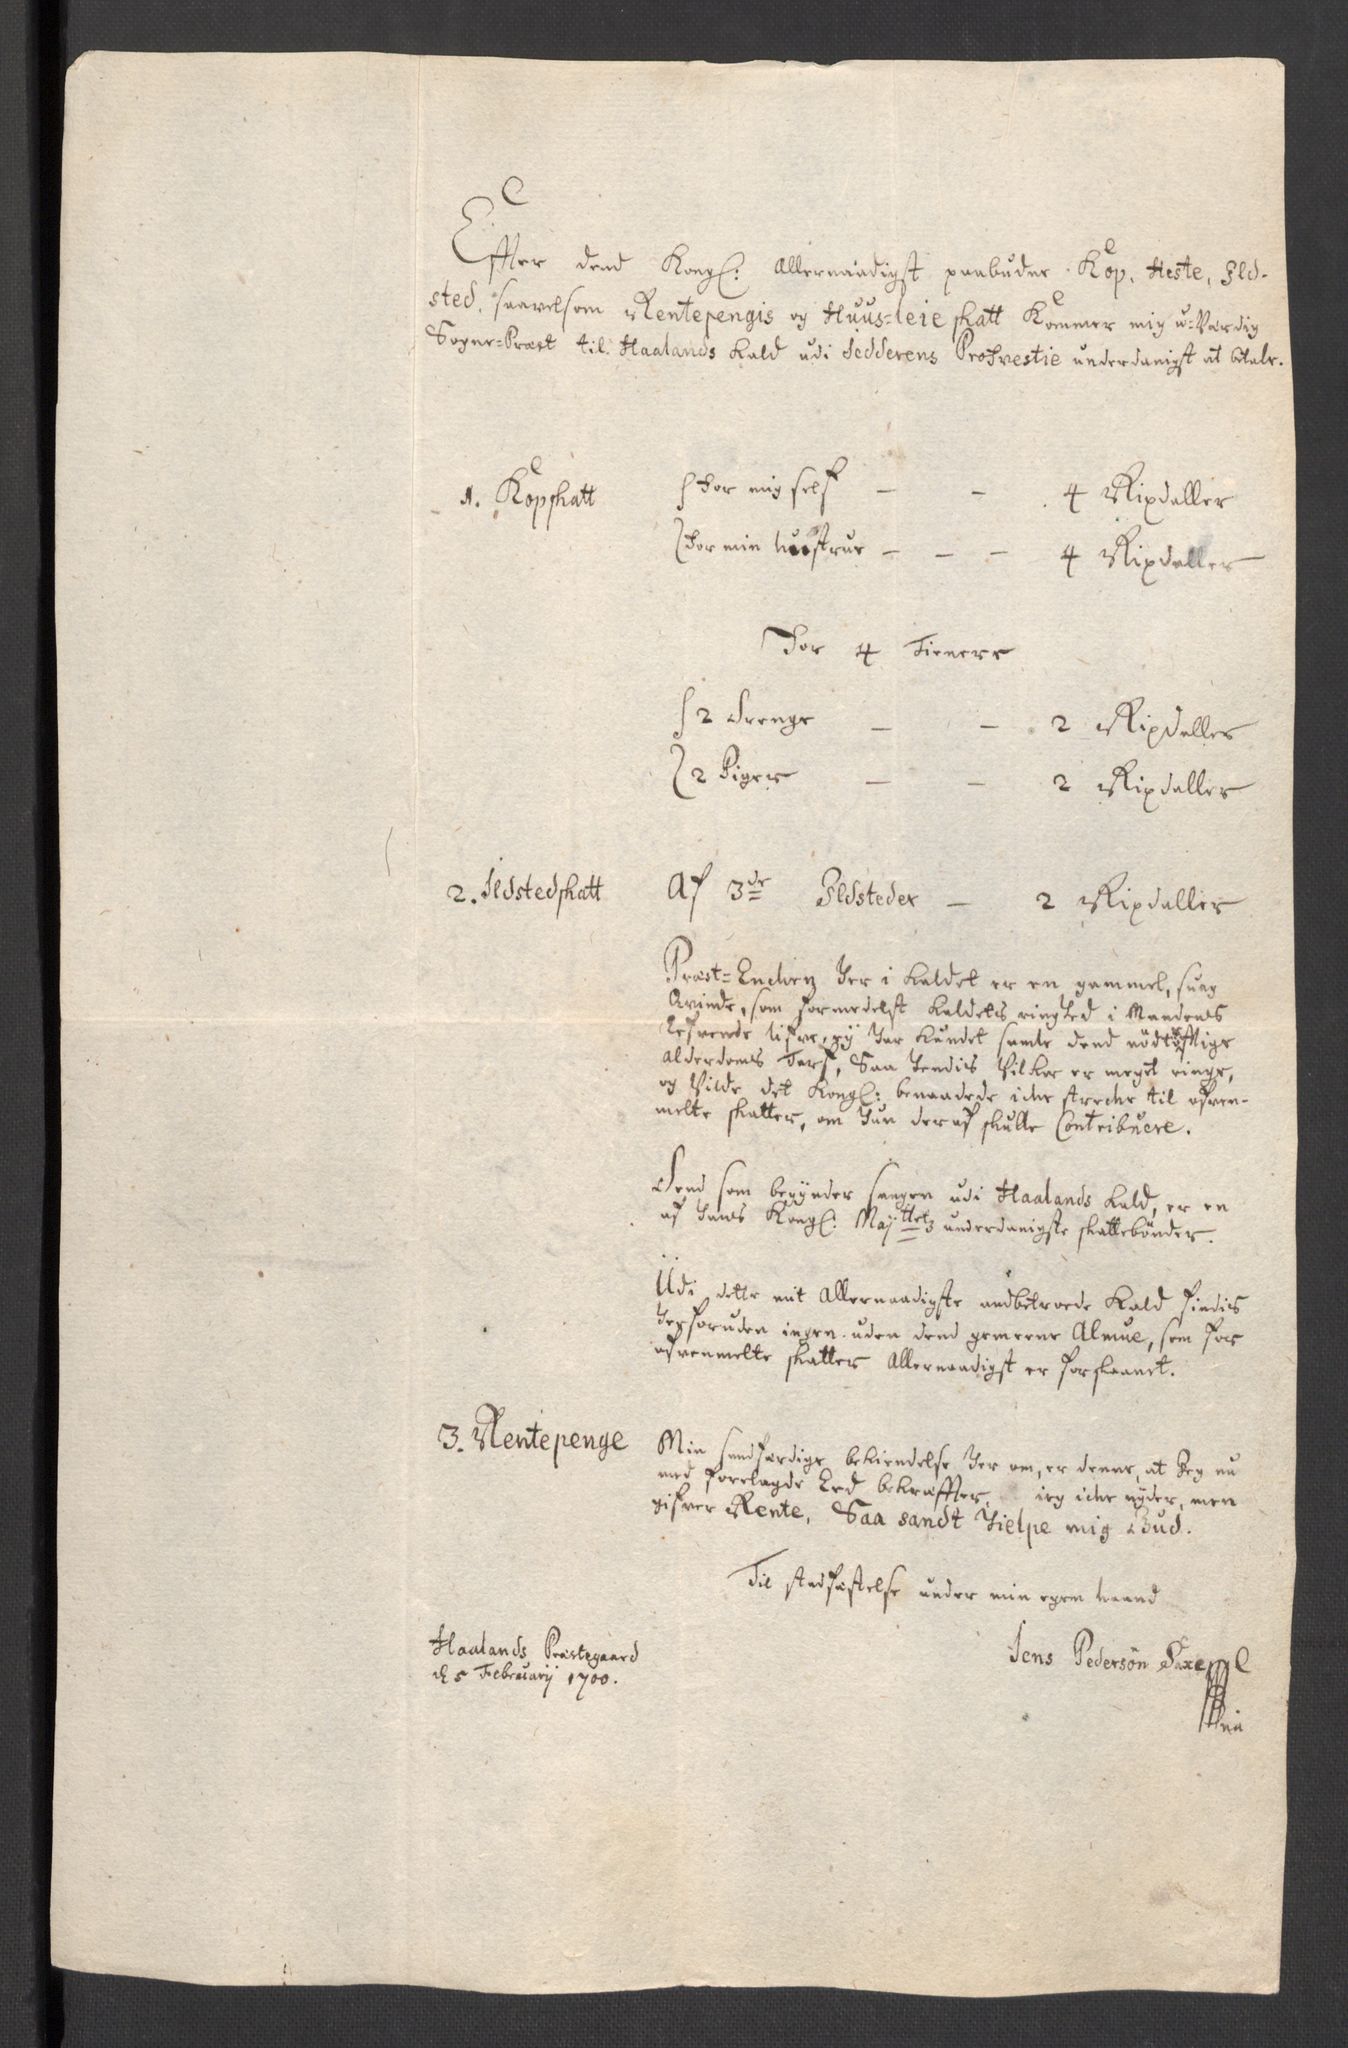 Effter dend Kongl: Allernaadigst paabudne Kop, Heste, Ild-
sted, saavelsom Rentepengis og Huus-leie skatt Kommer mig u-Værdig
Sogne-Præst til Haalands Kald udi Jedderens Profvestie underdanigst at betale.
1. Kopskatt
For mig self — — 4 Rixdaller
For min hustrue — — — 4 Rixdaller
For 4 Tienere
2 Drenge — — 2 Rixdaller
2 Piger — — 2 Rixdaller
2. Ildstedskatt Af 3de Ildsteder — 2 Rixdaller
Præst-Enchen her i Kaldet er en gammel, suag
Qvinde, som formedelst Kaldets ringhed i Mandens
lefvende lifve, ey har kundet samle dend nödtörfftige
alderdoms Tarf, Saa hendis Vilkor er meget ringe,
og Vilde det Kongl: benaadede iche streche til ofven-
melte skatter, om hun deraf skulle Contribuere.
Dend som begynder sangen udi Haalands Kald, er en
af hans Kongl: Maytts underdanigste skattebönder.
Udi dette mit Allernaadigste anbetroede Kald findis
herforuden ingen uden dend gemeene Almue, som for
ofvenmelte skatter Allernaadigst er forskaanet.
3. Rentepenge Min sandfærdige bekiendelse her om, er denne, at Jeg nu
med forelagde Eed bekræffter, ieg iche nyder, men
gifver Rente, Saa sandt hielpe mig Gud.
Til stadfæstelse under min egen haand
Haalands Præstegaard
d 5 Februarij 1700.
Jens Pedersön